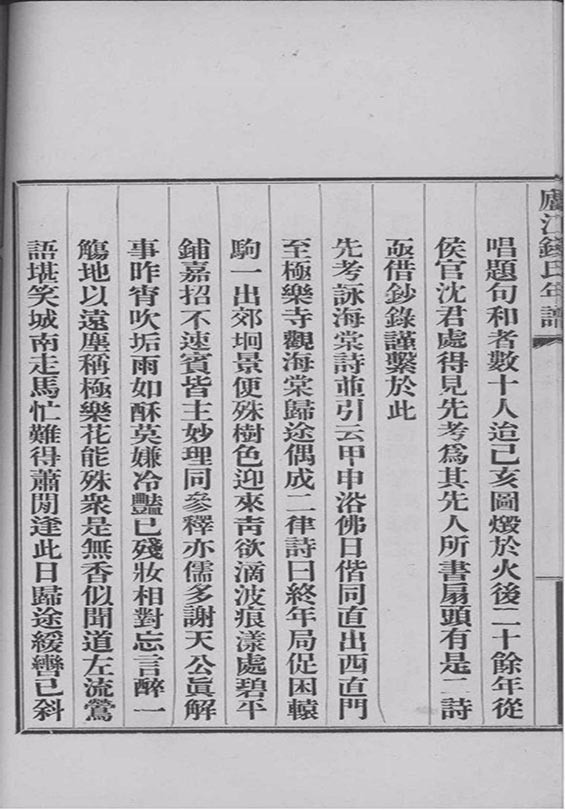 廬江錢氏年譜
唱題句和者數十人迨己亥圖燬於火後二十餘年從
侯官沈君處得見先考爲其先人所書扇頭有是二詩
亟借鈔錄謹繫於此
先考詠海棠詩並引云甲申浴佛日偕同直出西直門
至極樂寺觀海棠歸途偶成二律詩曰終年局促困轅
駒一出郊坰景便殊樹色迎來靑欲滴波痕漾處碧平
鋪嘉招不速賓皆主妙理同參釋亦儒多謝天公眞解
事昨宵吹垢雨如酥莫嫌冷豔已殘妝相對忘言醉一
觴地以遠塵稱極樂花能殊衆是無香似聞道左流鶯
語堪笑城南走馬忙難得蕭閒逢此日歸途緩轡已斜